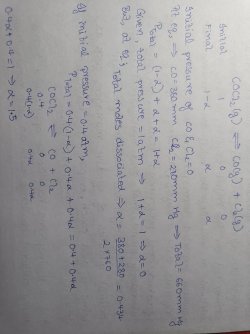 COCl₂(g) ⇌ CO(g) + Cl₂(g)
Initial 1 0 0
Final 1-α α α
Initial pressure of CO & Cl₂ = 0
At eq. ⇒ CO = 380mm Cl₂ = 280mm Hg ⇒ Total = 660mm Hg
P total = (1-α) + α + α = 1+α
Given total pressure = 1atm ⇒ 1+α = 1 ⇒ α = 0
But at eq, total moles dissociated ⇒ α = 380+280 / 2×760 = 0.434
If initial pressure = 0.4 atm,
P total = 0.4(1-α) + 0.4α + 0.4α = 0.4 + 0.4α
COCl₂ ⇌ CO + Cl₂
0.4 0 0
0.4(1-α) 0.4α 0.4α
0.4α + 0.4 = 1 ⇒ α = 1.5